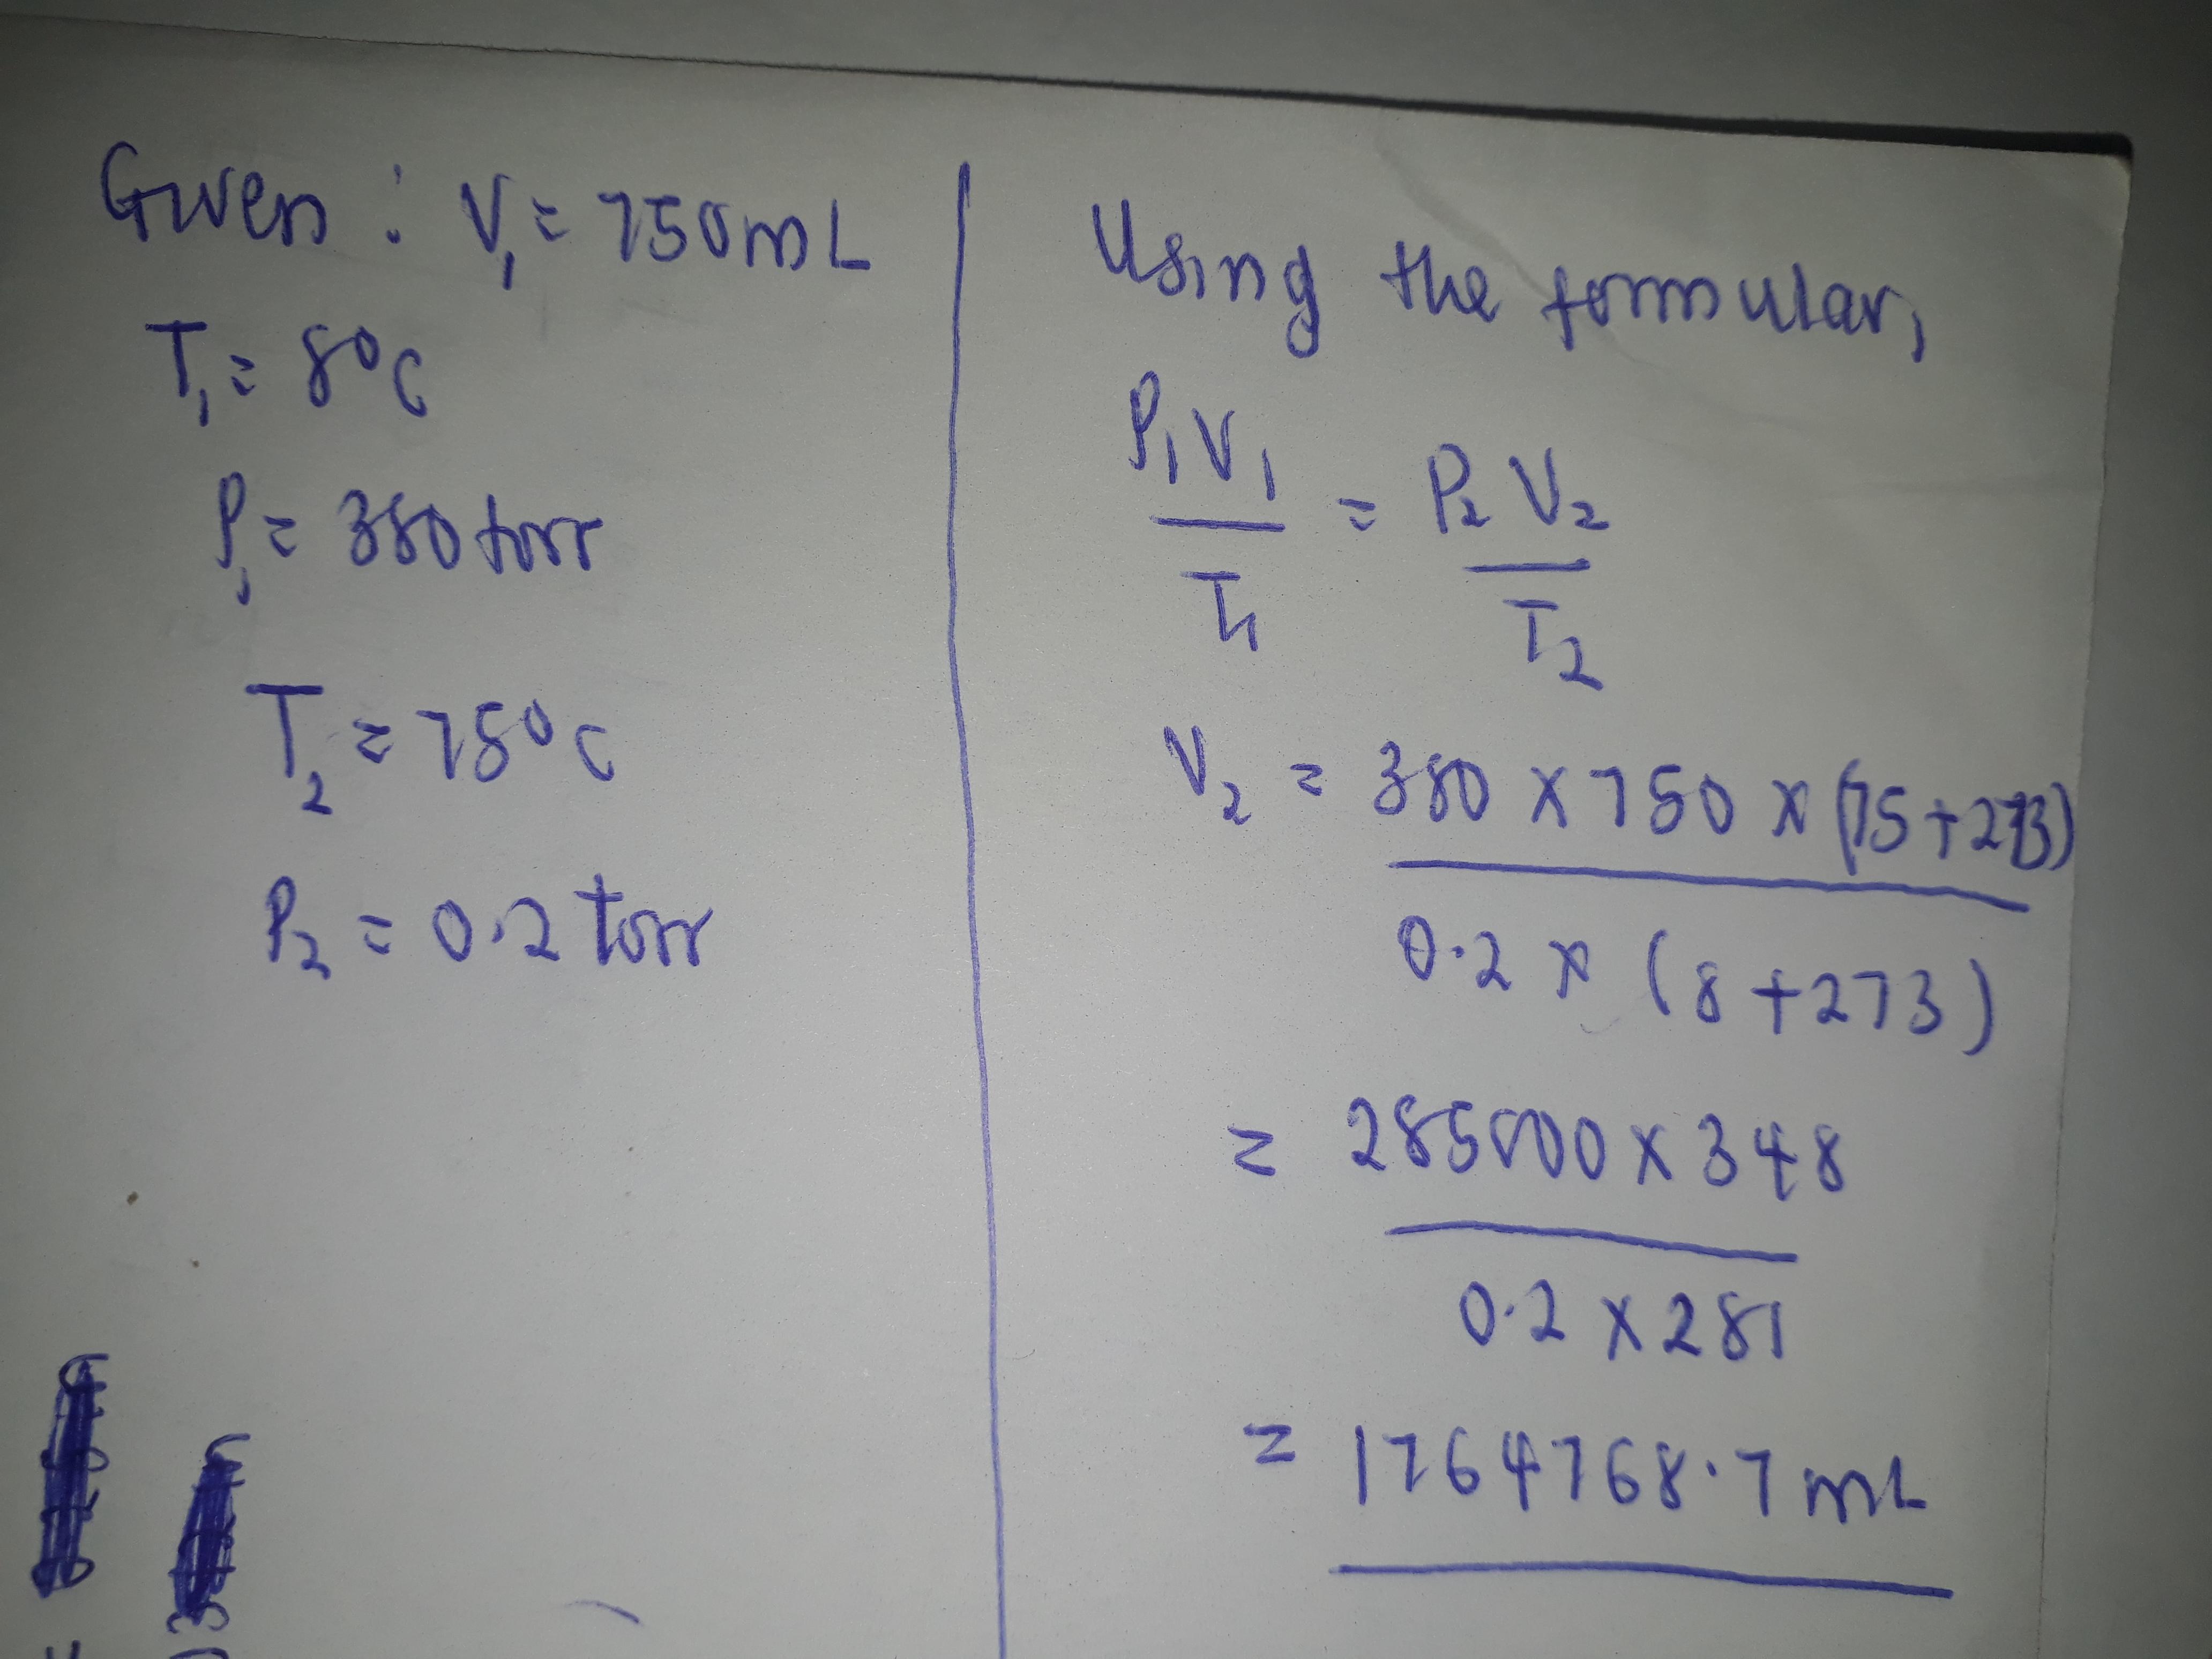 Given : V₁ = 750mL
T₁ = 8⁰C
P₁ = 380 torr
T₂ = 75⁰C
P₂ = 0.2 torr
Using the formular,
P₁V₁ = P₂ V₂
T₁ T₂
V₂ = 380 x 750 x (75+273)
0.2 x (8+273)
= 285000 x 348
0.2 x 281
= 1764768.7 mL